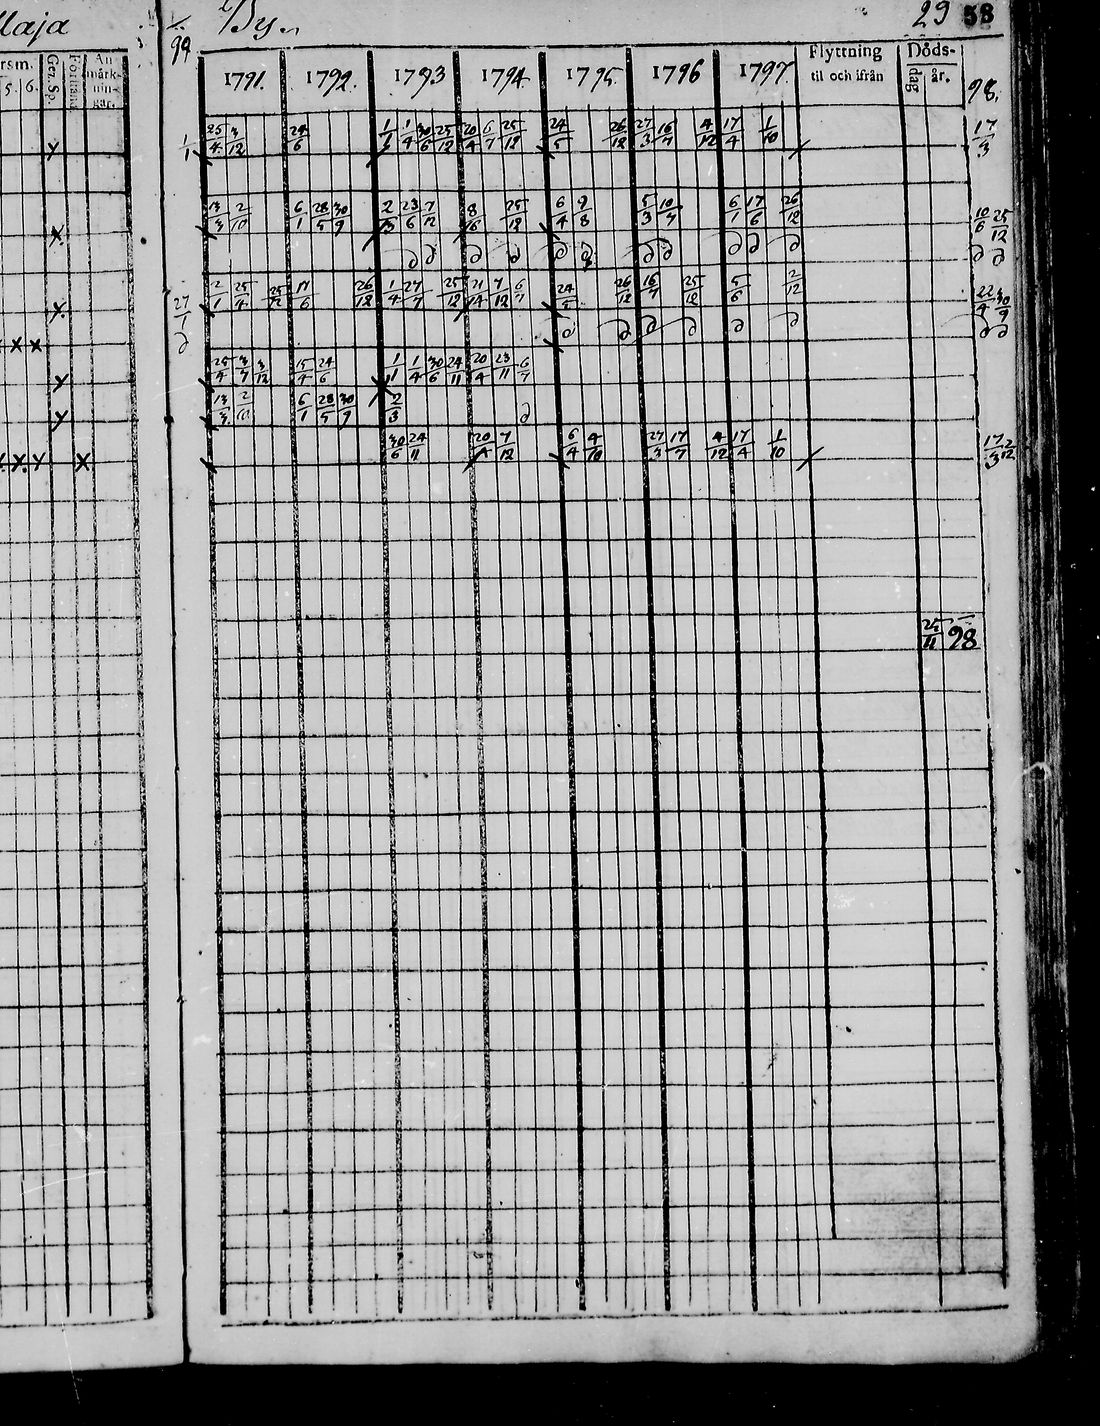 Maja By. 29 58
rsm. Gez. Sp. Förstånd An märk- nin- gar. 99 1791. 1792. 1793 1794. 1795. 1796 1797. Flyttning til och ifrån Döds- dag år. 98.
5. 6.
y 1/1 25/4 3/12 24/6 1/1 1/4 30/6 25/12 20/4 6/7 25/12 24/5 26/12 27/3 16/7 4/12 17/4 1/10 17/3
x 13/3 2/10 6/1 28/5 30/9 2/3 23/6 7/12 8/6 25/12 6/4 9/8 5/3 10/7 6/1 17/6 26/12 10/6 25/12
∂ ∂ ∂ ∂ ∂ ∂ ∂ ∂ ∂ ∂ ∂ ∂ ∂
y. 27/1 2/1 25/4 25/12 17/6 26/12 1/4 27/7 25/12 21/4 7/12 6/7 24/5 26/12 16/7 25/12 5/6 2/12 22/4 30/9
x x ∂ ∂ ∂ ∂ ∂ ∂ ∂ ∂ ∂
y 25/4 3/7 3/12 15/4 24/6 1/1 1/4 30/6 24/11 20/4 23/11 6/7
y 13/3 2/10 6/1 28/5 30/9 2/3 ∂
x. y x 30/6 24/11 20/4 7/12 6/4 4/10 27/3 17/7 4/12 17/4 1/10 17/3 2/12
25/11 98